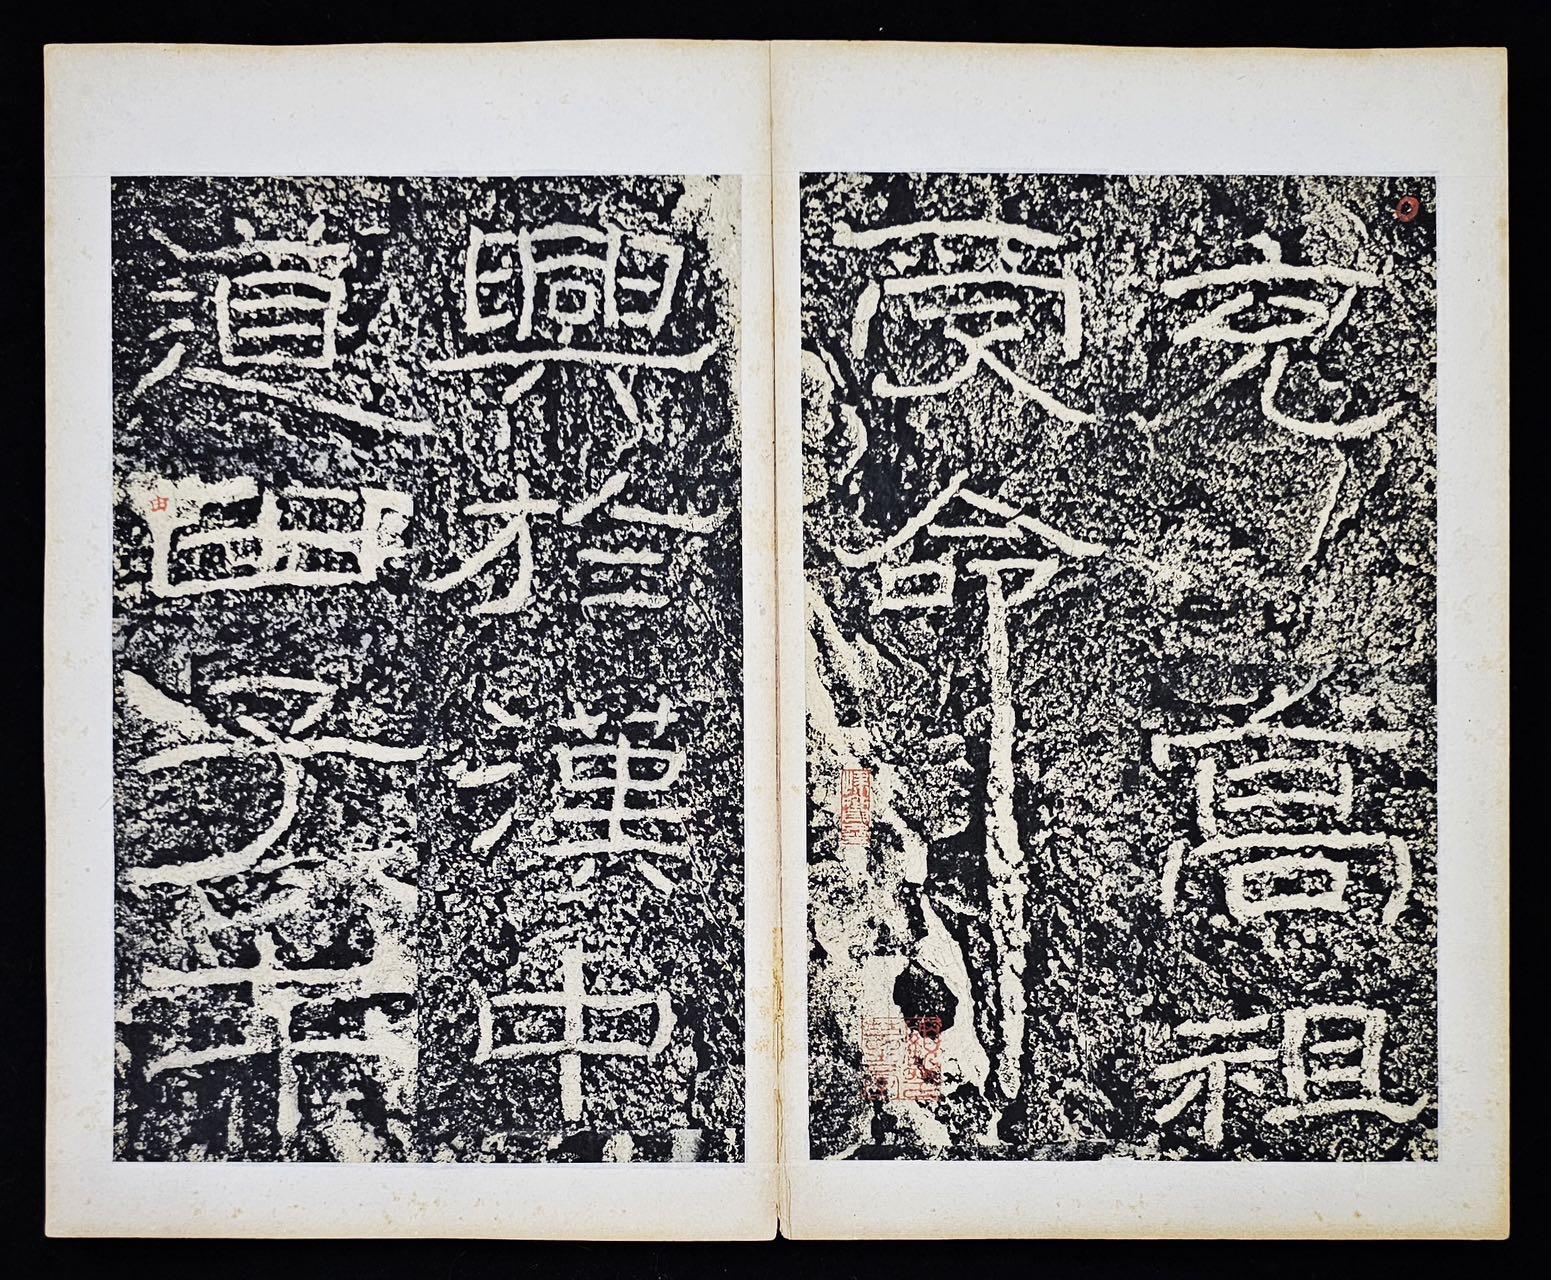 充高祖
受命
興於漢中
道由子午